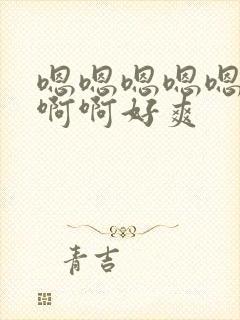 嗯嗯嗯嗯嗯
啊啊好爽
青吉